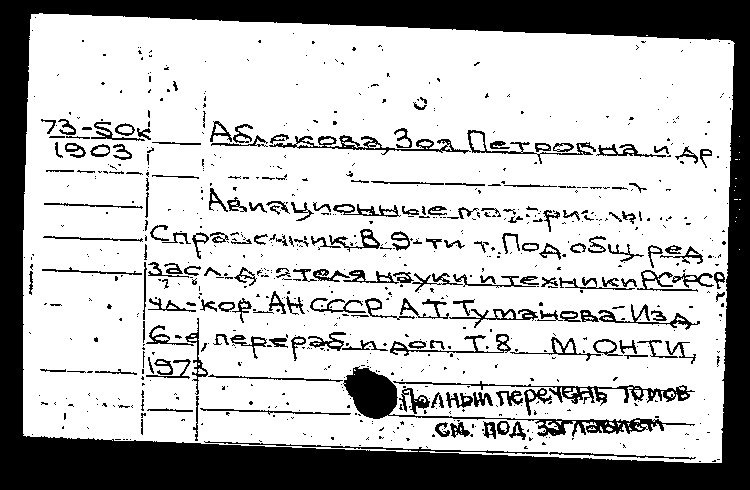 73-50к
1903
Аблекова, Зоя Петровна и др.
Авиационные материалы.
Справочник. В 9-ти т. Под общ. ред.
засл. деятеля науки и техники РСФСР
чл.-кор. АН СССР А.Т. Туманова. Изд.
6-е, перераб. и доп. Т.8. М., ОНТИ,
1973
Полный перечень томов
см. под заглавием